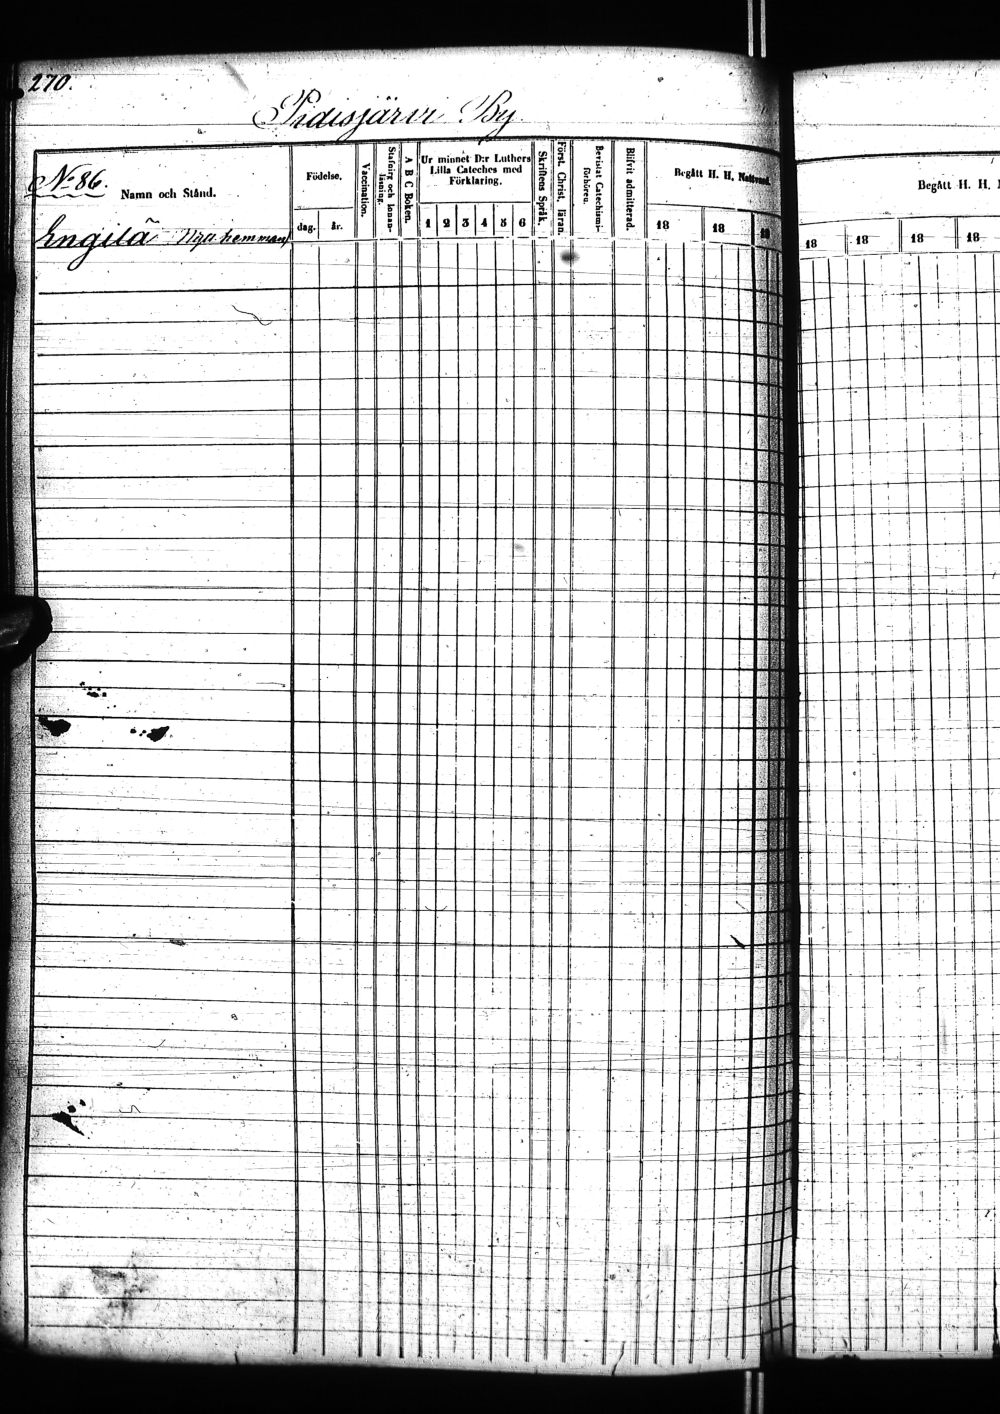 270.
Pidisjärvi By
No 86.
Namn och Stånd.
Födelse.
dag.
år.
Vaccination.
Stafning och Innan-
läsning.
A B C Boken.
Ur minnet D:r Luthers
Lilla Cateches med
Förklaring.
1 2 3 4 5 6
Skriftens Språk.
Först. Christ. läran.
Bevistat Catechismi-
förhören.
Blifvit admitterad.
Begått H. H. Nattvard.
18 18 18
Engilä Nya hemman
Begått H. H.
18 18 18 18